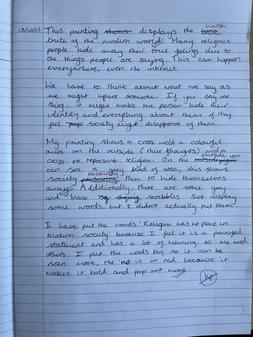 This painting displays the harsh
truth of the modern world. Many religious
people hide away their true feelings due to
the things people are saying. This can happen
everywhere, even the internet.
We have to think about what we say as
we might upset someone. If you say one
thing, it might make the person hide their
identity and everything about them if they
feel society might disapprove of them.
My painting shows a cross with a colourful
aura on the outside (their thoughts) and a
cross to represent religion. On the outside you
can see a grey kind of aura, this shows
society pressuring them to hide themselves
away. Additionally, there are some grey
and black scribbles that display
some words but I didn't actually put them.
I have put the words 'Religion has no place in
modern society' because I feel it is a powerful
statement and has a lot of meaning to me and
others. I put the words big so it can be
seen more, the 'no' is in red because it
makes it bold and pop out more.